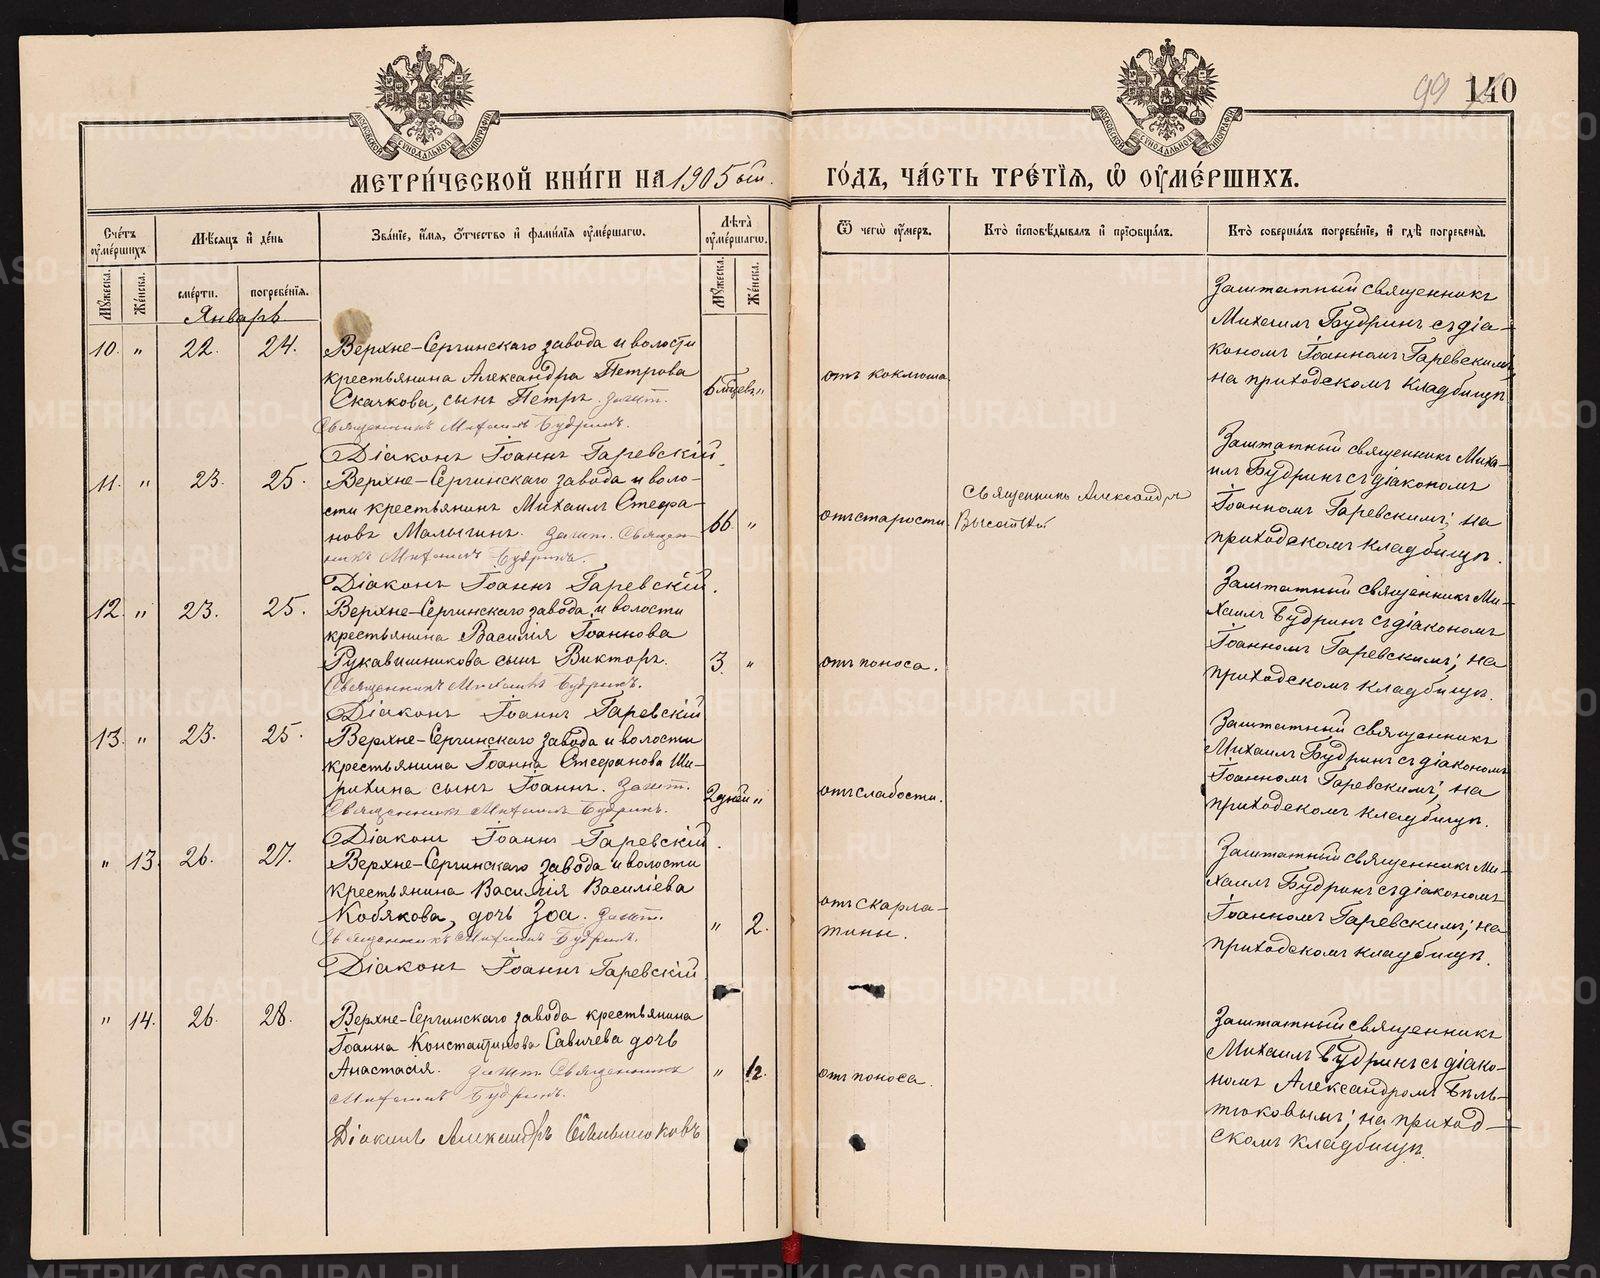 99 140
МЕТРИ́ЧЕСКОЙ КНИ́ГИ НА 1905 ый.
ГО́ДЪ, ЧА́СТЬ ТРЕ́ТІѦ, Ѽ ОУМЕ́РШИХЪ.
МОСКОВСКОЙ СѴНОДАЛЬНОЙ ТИПОГРАФІИ
МОСКОВСКОЙ СѴНОДАЛЬНОЙ ТИПОГРАФІИ
Сче́тъ оуме́ршихъ
Мѣ́сяцъ и де́нь
Зва́ніе, и́мя, о́тчество и фами́лія оуме́ршагѡ.
Лѣта̀ оуме́ршагѡ.
Ѿ чегѡ̀ оу́меръ.
Кто̀ исповѣ́дывалъ и пріобща́лъ.
Кто̀ соверша́лъ погребе́ніе, и гдѣ̀ погребены̀.
Му́жеска.
Же́нска.
сме́рти.
погребе́нія.
Му́жеска.
Же́нска.
Январь
10. " 22. 24.
Верхне-Сергинскаго завода и волости
крестьянина Александра Петрова
Скачкова, сынъ Петръ. Зашт.
Священникъ Михаилъ Будринъ.
Діаконъ Іоаннъ Гаревскій.
6 мѣсяц. "
отъ коклюша
Заштатный священникъ
Михаилъ Будринъ съ діа-
кономъ Іоанномъ Гаревскимъ;
на приходскомъ кладбищѣ
11. " 23. 25.
Верхне-Сергинскаго завода и воло-
сти крестьянинъ Михаилъ Стефа-
новъ Малыгинъ. Зашт. Священ-
никъ Михаилъ Будринъ.
Діаконъ Іоаннъ Гаревскій.
66. "
отъ старости.
Священникъ Александръ
Заштатный священникъ Миха-
илъ Будринъ съ діакономъ
Іоанномъ Гаревскимъ; на
приходскомъ кладбищѣ.
12. " 23. 25.
Верхне-Сергинскаго завода и волости
крестьянина Василія Іоаннова
Рукавишникова сынъ Викторъ.
Священникъ Михаилъ Будринъ.
Діаконъ Іоаннъ Гаревскій
3. "
отъ поноса.
Заштатный священникъ Ми-
хаилъ Будринъ съ діакономъ
Іоанномъ Гаревскимъ; на
приходскомъ кладбищѣ.
13. " 23. 25.
Верхне-Сергинскаго завода и волости
крестьянина Іоанна Стефанова Ши-
рихина сынъ Іоаннъ. Зашт.
Священникъ Михаилъ Будринъ.
Діаконъ Іоаннъ Гаревскій.
2 дней "
отъ слабости.
Заштатный священникъ
Михаилъ Будринъ съ діакономъ
Іоанномъ Гаревскимъ; на
приходскомъ кладбищѣ.
" 13. 26. 27.
Верхне-Сергинскаго завода и волости
крестьянина Василія Василіева
Кобякова, дочь Зоа. Зашт.
Священникъ Михаилъ Будринъ.
Діаконъ Іоаннъ Гаревскій
" 2.
отъ скарла-
тины.
Заштатный священникъ Ми-
хаилъ Будринъ съ діакономъ
Іоанномъ Гаревскимъ; на
приходскомъ кладбищѣ.
" 14. 26. 28.
Верхне-Сергинскаго завода крестьянина
Іоанна Константинова Савичева дочь
Анастасія. Зашт. Священникъ
Михаилъ Будринъ.
Діаконъ Александръ Бѣльтюковъ
"
отъ поноса.
Заштатный священникъ
Михаилъ Будринъ съ діако-
номъ Александромъ Бѣль-
тюковымъ; на приход-
скомъ кладбищѣ.
METRIKI.GASO-URAL.RU